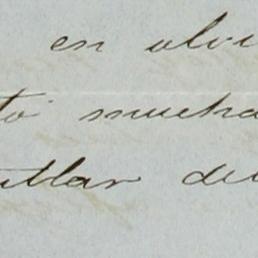 en olvi
to mucha
tlar de